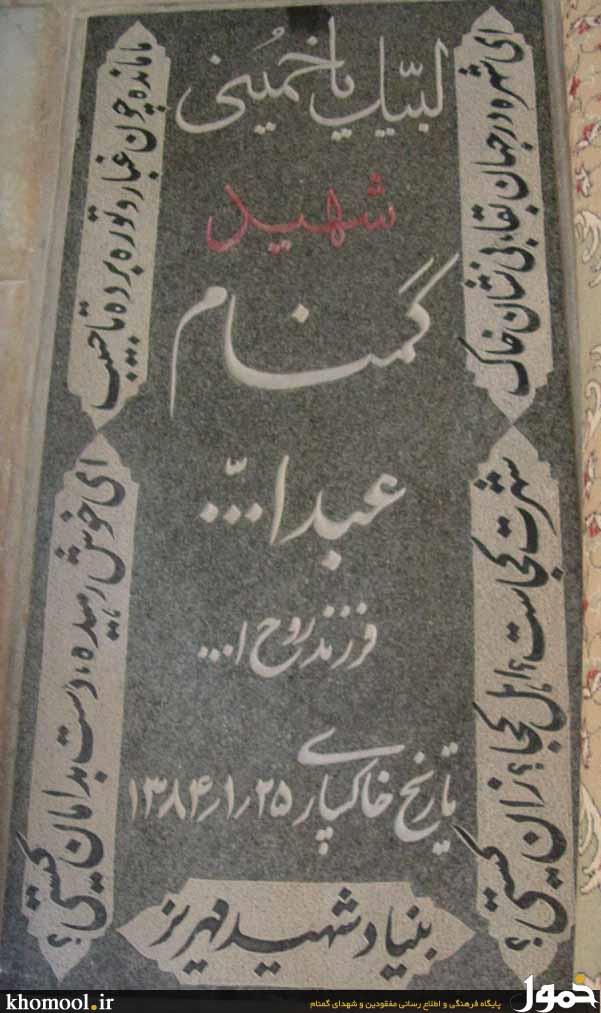 لبیک یا خمینی
شهید
گمنام
عبدا...
فرزند روح ا...
تاریخ خاکسپاری ۱۳۸۴/۱/۲۵
بنیاد شهید مهریز
ای شهره در جهان بقا، بی نشان خاک
شهرت کجاست؟ اهل کجا؟ زان کیستی؟
ما مانده چون غبار و تو ره برده تا حبیب
ای خوش رمیده، دست بدامان کیستی؟
khomool.ir
پایگاه فرهنگی و اطلاع رسانی مفقودین و شهدای گمنام
خمول